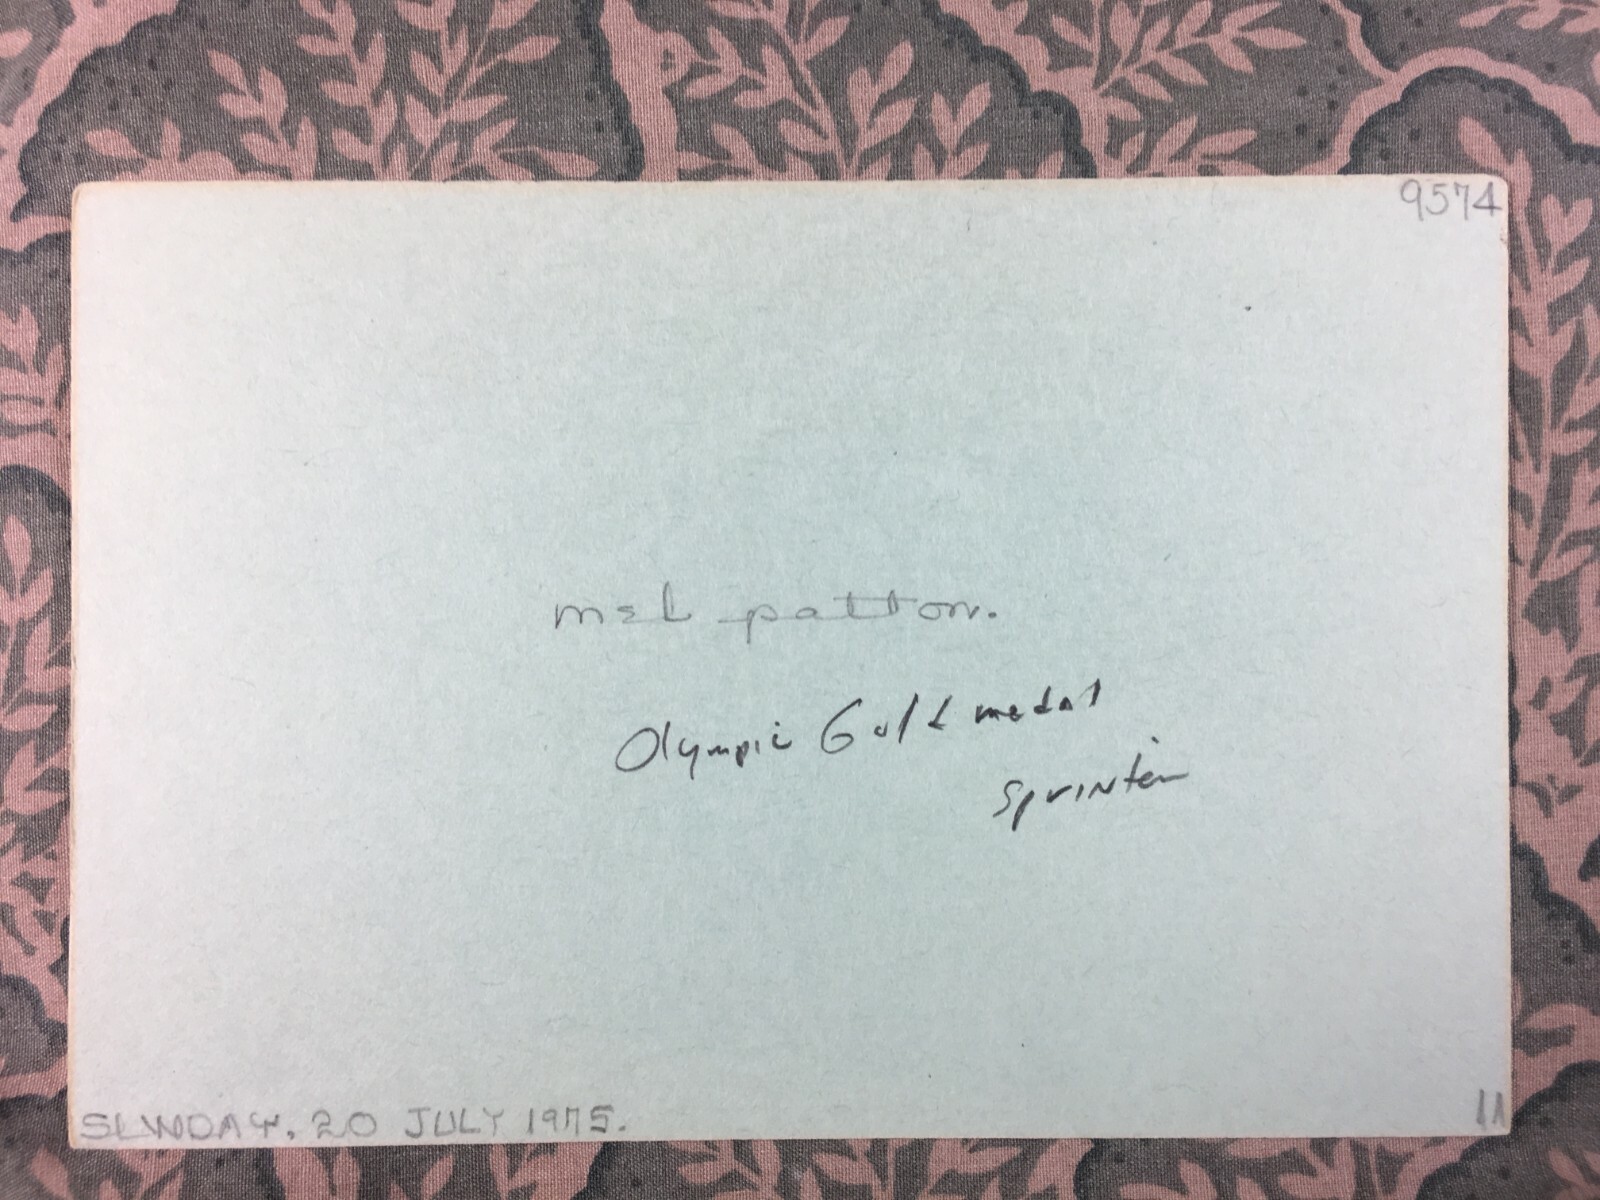 9574
mel patton.
Olympic Gold medal
sprinter
SUNDAY, 20 JULY 1975.
11